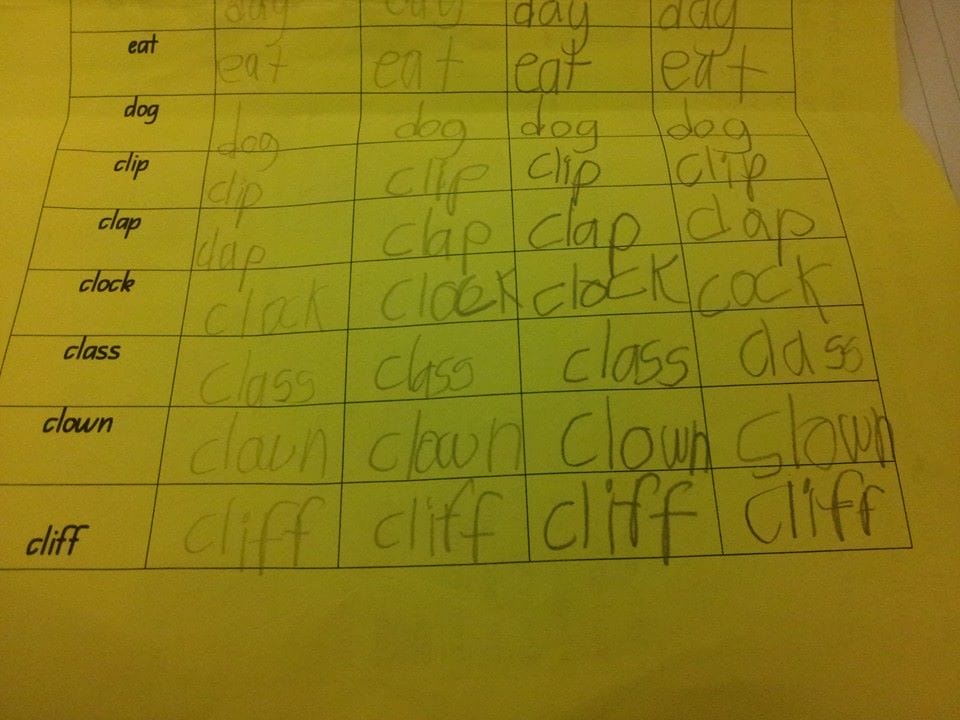 day day day day
eat eat eat eat eat
dog dog dog dog dog
clip clip clip clip clip
clap clap clap clap clap
clock clock clock clock cock
class class class class class
clown clown clown clown slown
cliff cliff cliff cliff cliff